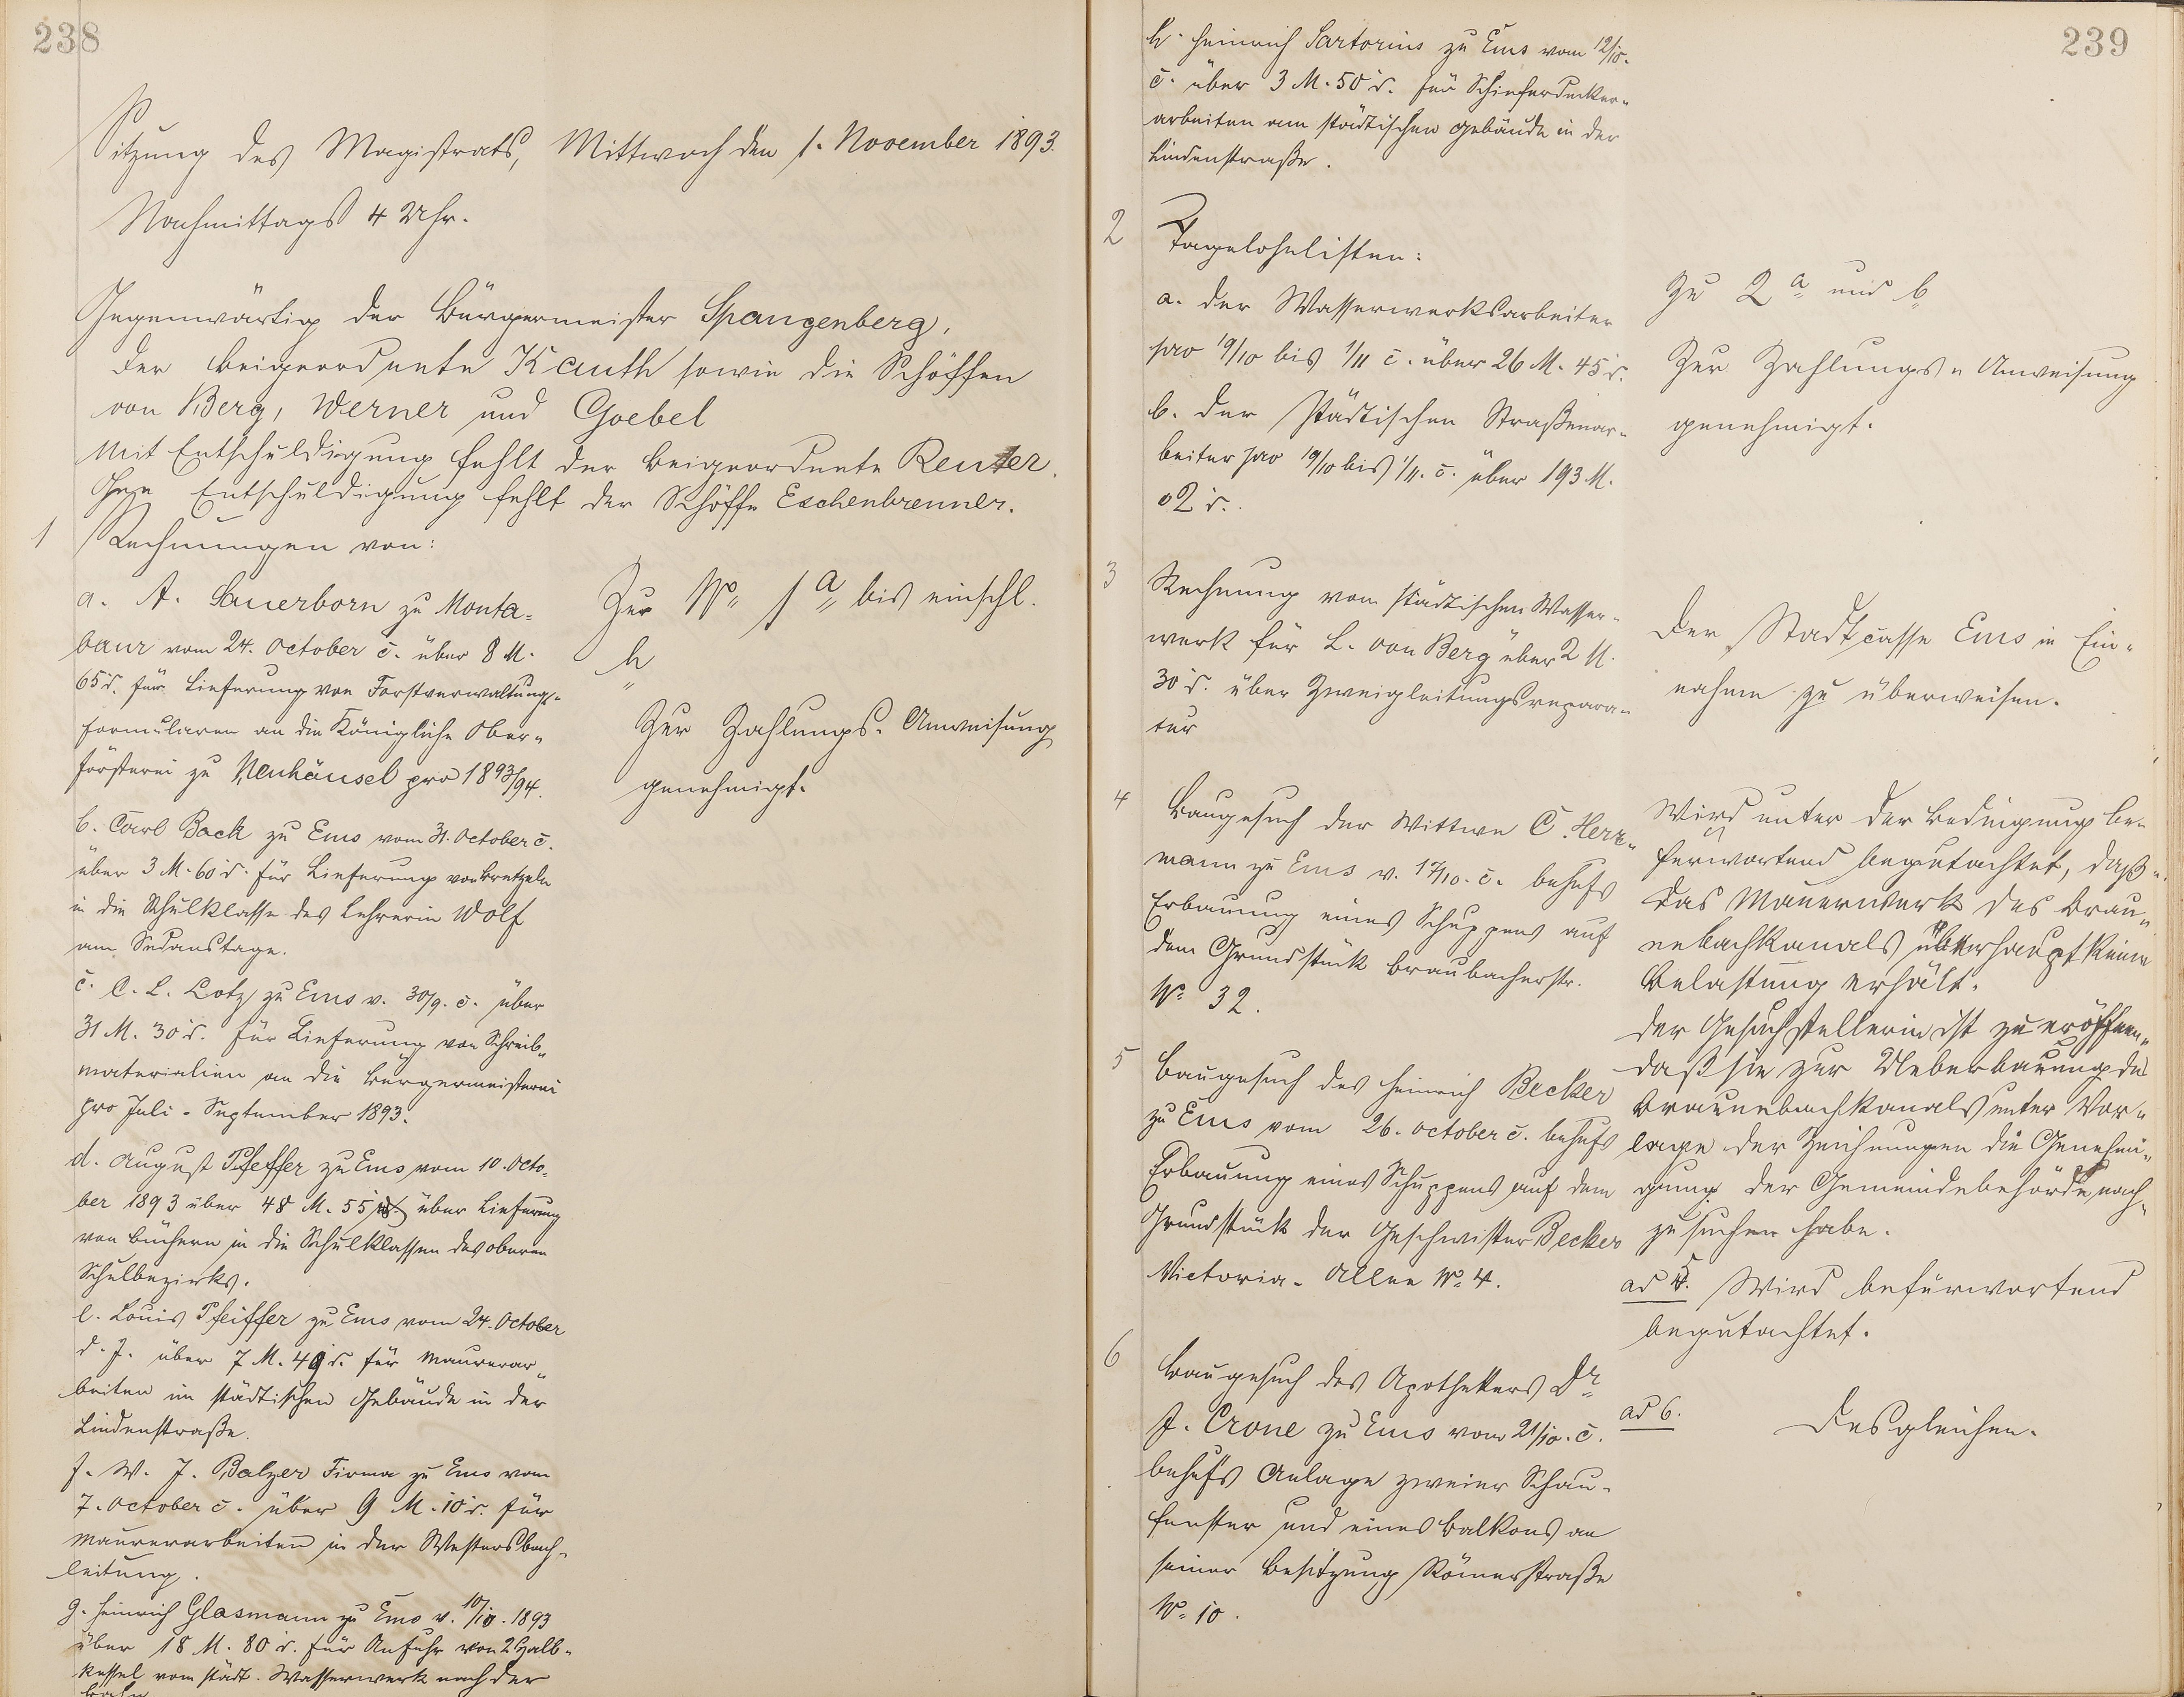 238
Sitzung des Magistrats, Mittwoch den 1. November 1893.
Nachmittags 4 Uhr.
Gegenwärtig der Bürgermeister Spangenberg,
der Beigeordnete Kauth sowie die Schöffen
von Berg, Werner und Goebel
Mit Entschuldigung fehlt der Beigeordnete Reuter.
Ohne Entschuldigung fehlt der Schöffe Eschenbrenner.
1 Rechnungen von:
a. A. Sauerborn zu Monta-
baur vom 24. October c. über 8 M.
65 d. für Lieferung von Forstverwaltungs-
formularen an die Königliche Ober-
försterei zu Neuhäusel pro 1893/94.
b. Carl Back zu Ems vom 31. October c.
über 3 M. 60 d. für Lieferung von Bretzeln
in die Schulklasse des Lehrerin Wolf
am Sedanstage.
c. C. L. Lotz zu Ems v. 30/9. c. über
31 M. 30 d. für Lieferung von Schreib-
materialien an die Bürgermeisterei
pro Juli - September 1893.
d. August Pfeffer zu Ems vom 10. Octo-
ber 1893 über 48 M. 55 d. über Lieferung
von Büchern in die Schulklassen des oberen
Schulbezirks.
e. Louis Pfeiffer zu Ems vom 24. October
d. J. über 7 M. 49 d. für Maurerar-
beiten im städtischen Gebäude in der
Lindenstraße.
f. W. J. Balzer Firma zu Ems vom
7. October c. über 9 M. 10 d. für
Maurerarbeiten in der Westersbach-
leitung.
g. Heinrich Glasmann zu Ems v. 10/10. 1893
über 18 M. 80 d. für Anfuhr von 2 Halb-
kessel vom städt. Wasserwerk nach der
Bahn
Zur No 1 a bis einschl.
h
Zur Zahlungs-Anweisung
genehmigt.
239
h. Heinrich Sartorius zu Ems vom 12/10.
c. über 3 M. 50 d. für Schieferdecker-
arbeiten am städtischen Gebäude in der
Lindenstraße.
2 Tagelohnlisten:
a. der Wasserwerksarbeiter
pro 19/10 bis 1/11 c. über 26 M. 45 d.
b. der städtischen Straßenar-
beiter pro 19/10 bis 1/11. c. über 193 M.
02 d.
Zu 2 a und b
Zur Zahlungs-Anweisung
genehmigt.
3 Rechnung vom städtischen Wasser-
werk für L. von Berg über 2 M.
30 d. über Zweigleitungsrepara-
tur
Der Stadtcasse Ems in Ein-
nahme zu überweisen.
4 Baugesuch der Wittwe C. Herr-
mann zu Ems v. 17/10. c. behufs
Erbauung eines Schuppens auf
dem Grundstück Braubacherstr.
No 32.
Wird unter der Bedingung be-
fürwortend begutachtet, daß
das Mauerwerk des Brau-
nebachkanals überhaupt keine
Belastung erhält.
Der Gesuchstellerin ist zu eröffnen,
daß sie zur Ueberbauung des
Braunebachkanals unter Vor-
lage der Zeichnungen die Genehmi-
gung der Gemeindebehörde nach-
zusuchen habe.
5 Baugesuch des Heinrich Becker
zu Ems vom 26. October c. behufs
Erbauung eines Schuppens auf dem
Grundstück der Geschwister Becker
Victoria-Allee No 4.
ad 5. Wird befürwortend
begutachtet.
6 Baugesuch des Apothekers Dr
J. Crone zu Ems vom 21/10. c.
behufs Anlage zweier Schau-
fenster und eines Balkons an
seiner Besitzung Römerstraße
No 10.
ad 6. Desgleichen.